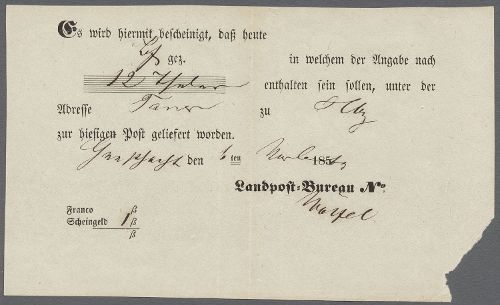 Es wird hiermit bescheinigt, daß heute
Bf gez. in welchem der Angabe nach
12 Thaler enthalten sein sollen, unter der
Adresse zu
zur hiesigen Post geliefert worden.
den 6 ten 185
Landpost-Bureau No.
Franco ß
Scheingeld 1 ß
ß